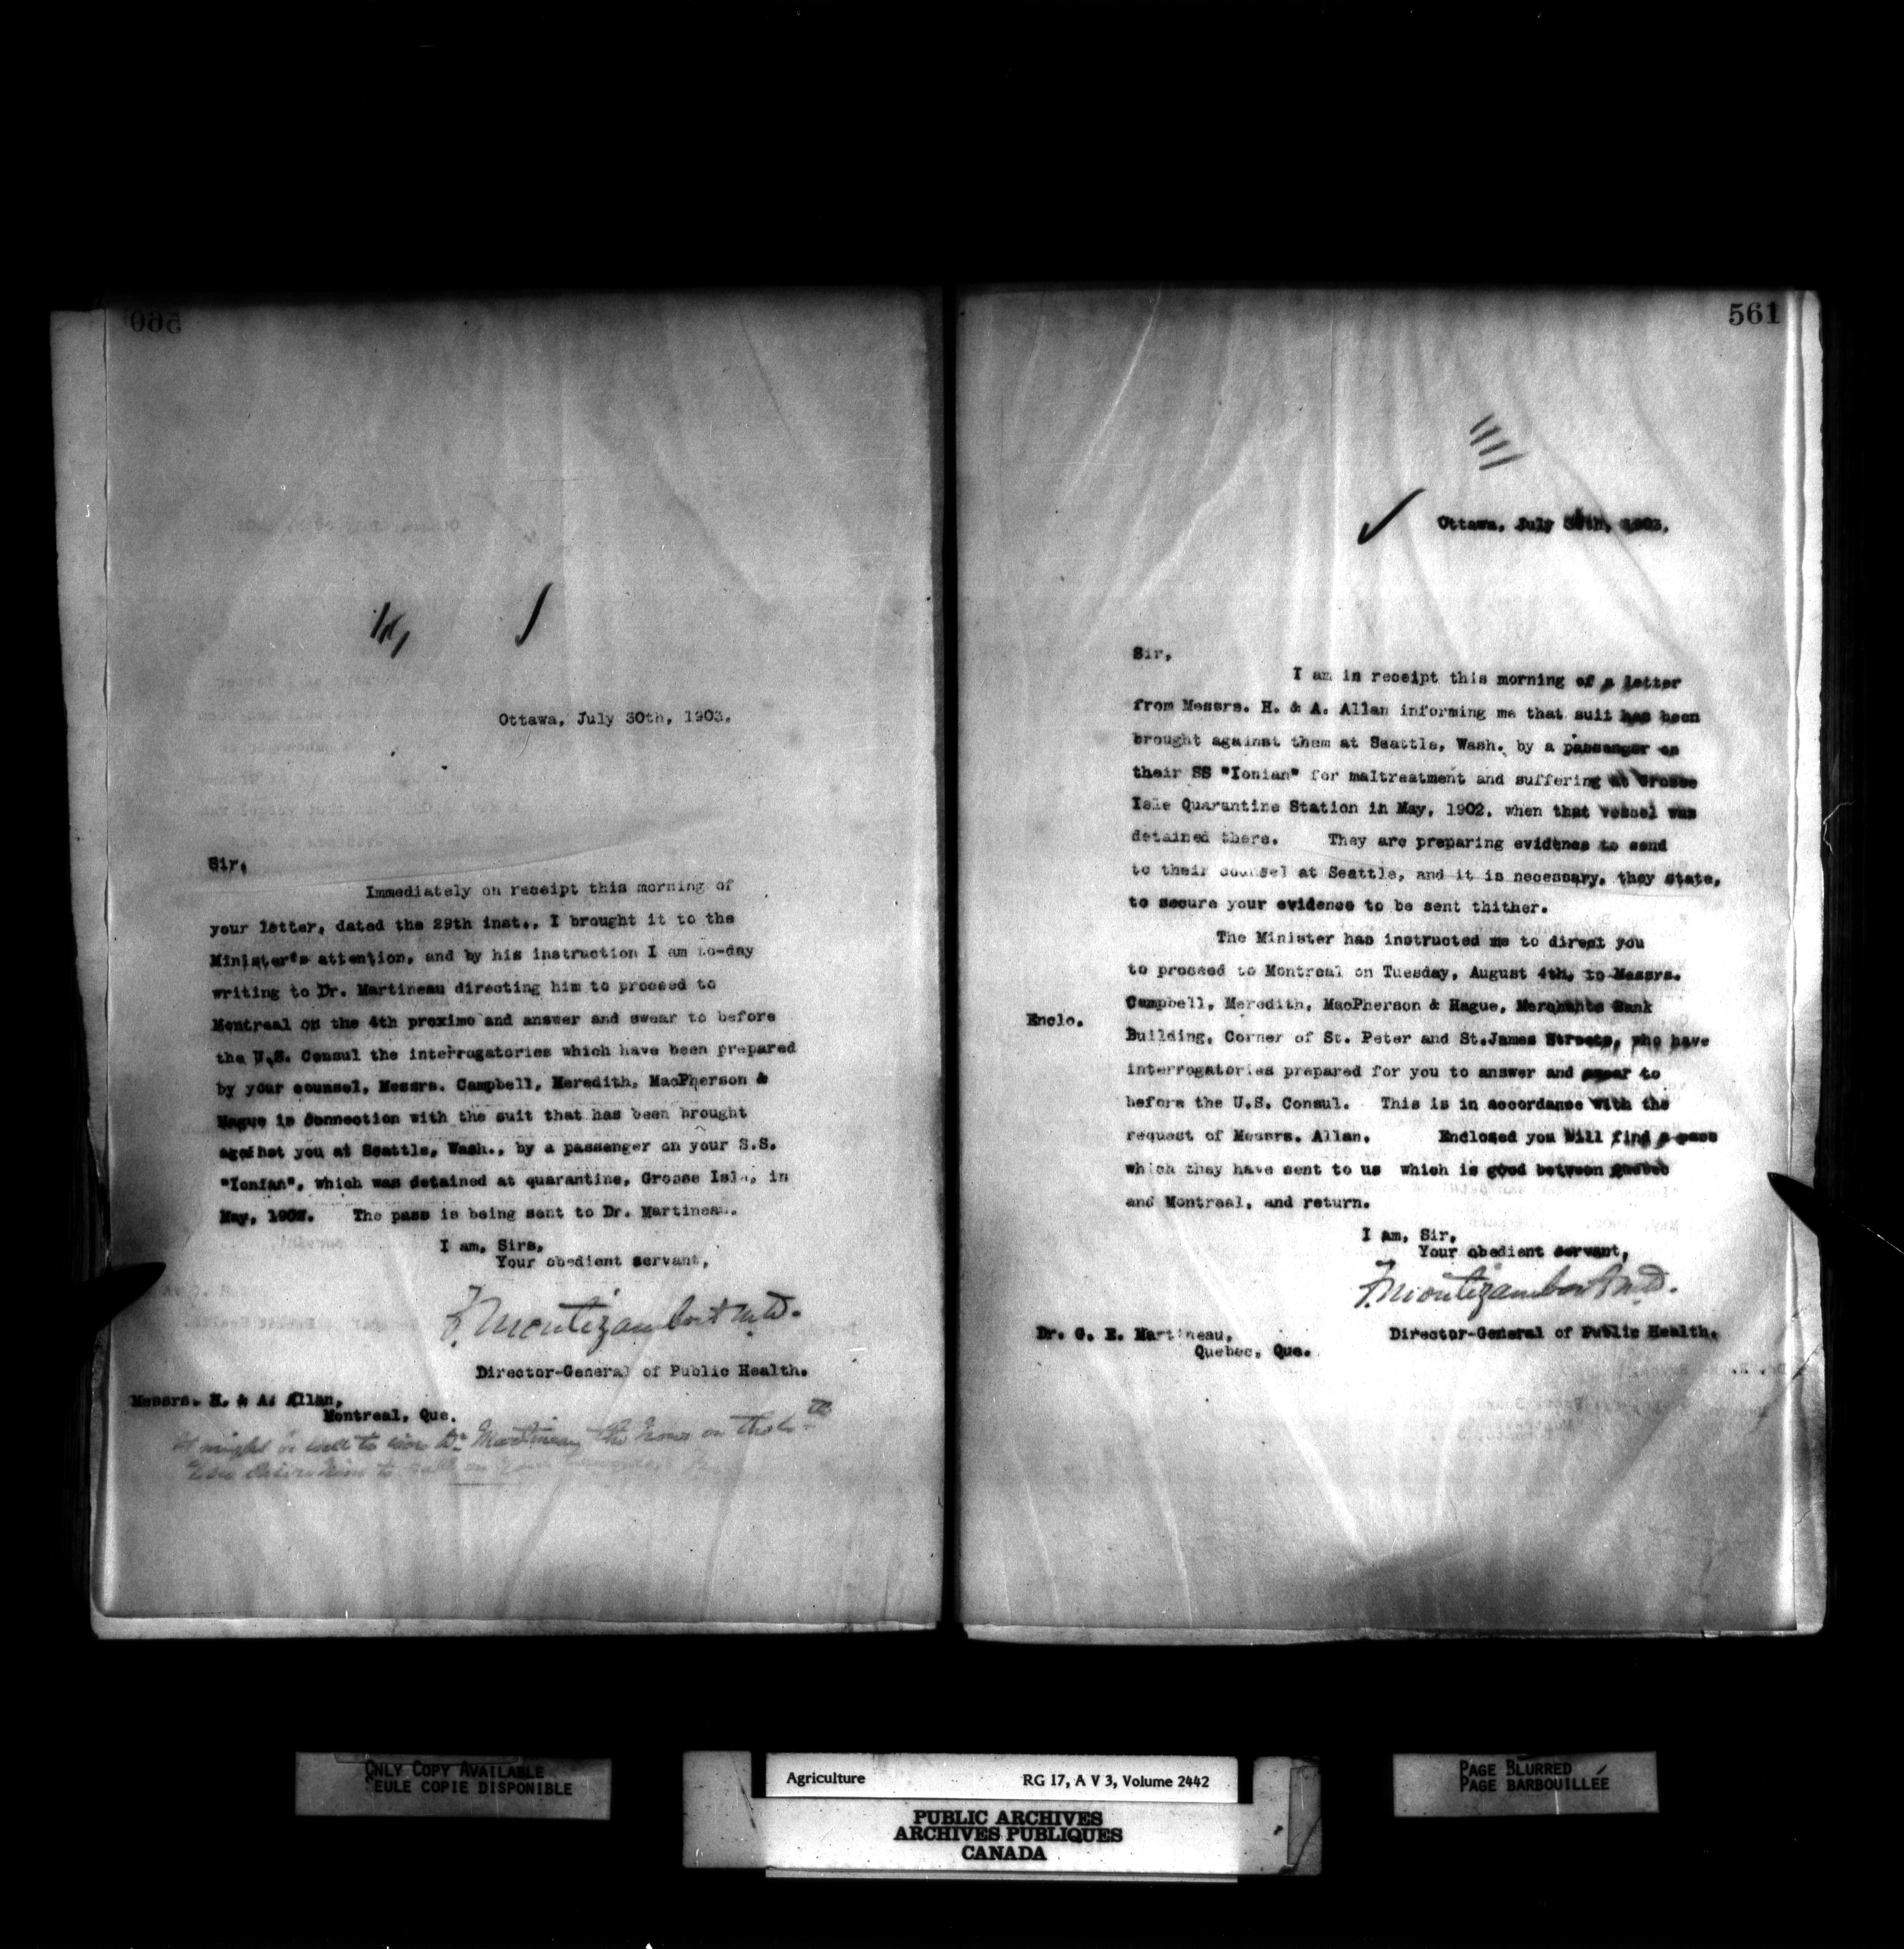 560
Ottawa, July 30th, 1903.
Sir,
Immediately on receipt this morning of
your letter, dated the 29th inst., I brought it to the
Minister's attention, and by his instruction I am to-day
writing to Dr. Martineau directing him to proceed to
Montreal on the 4th proximo and answer and swear to before
the U.S. Consul the interrogatories which have been prepared
by your counsel, Messrs. Campbell, Meredith, MacPherson &
Hague in connection with the suit that has been brought
against you at Seattle, Wash., by a passenger on your S.S.
"Ionian", which was detained at quarantine, Grosse Isle, in
May, 1902. The pass is being sent to Dr. Martineau.
I am, Sirs,
Your obedient servant,
F. Montizambert M.D.
Director-General of Public Health.
Messrs. H. & A. Allan,
Montreal, Que.
It might be well to wire Dr. Martineau the hour on the 4th
you desire him to call on your
561
Ottawa, July 30th, 1903.
Sir,
I am in receipt this morning of a letter
from Messrs. H. & A. Allan informing me that suit has been
brought against them at Seattle, Wash. by a passenger on
their SS "Ionian" for maltreatment and suffering at Grosse
Isle Quarantine Station in May, 1902, when that vessel was
detained there. They are preparing evidence to send
to their counsel at Seattle, and it is necessary, they state,
to secure your evidence to be sent thither.
The Minister has instructed me to direct you
to proceed to Montreal on Tuesday, August 4th, to Messrs.
Campbell, Meredith, MacPherson & Hague, Merchants Bank
Enclo.
Building, Corner of St. Peter and St.James Streets, who have
interrogatories prepared for you to answer and swear to
before the U.S. Consul. This is in accordance with the
request of Messrs. Allan. Enclosed you will find a pass
which they have sent to us which is good between Quebec
and Montreal, and return.
I am, Sir,
Your obedient servant,
F. Montizambert M.D.
Director-General of Public Health.
Dr. G. E. Martineau,
Quebec, Que.
ONLY COPY AVAILABLE
EULE COPIE DISPONIBLE
Agriculture RG 17, A V 3, Volume 2442
PUBLIC ARCHIVES
ARCHIVES PUBLIQUES
CANADA
PAGE BLURRED
PAGE BARBOUILLÉE